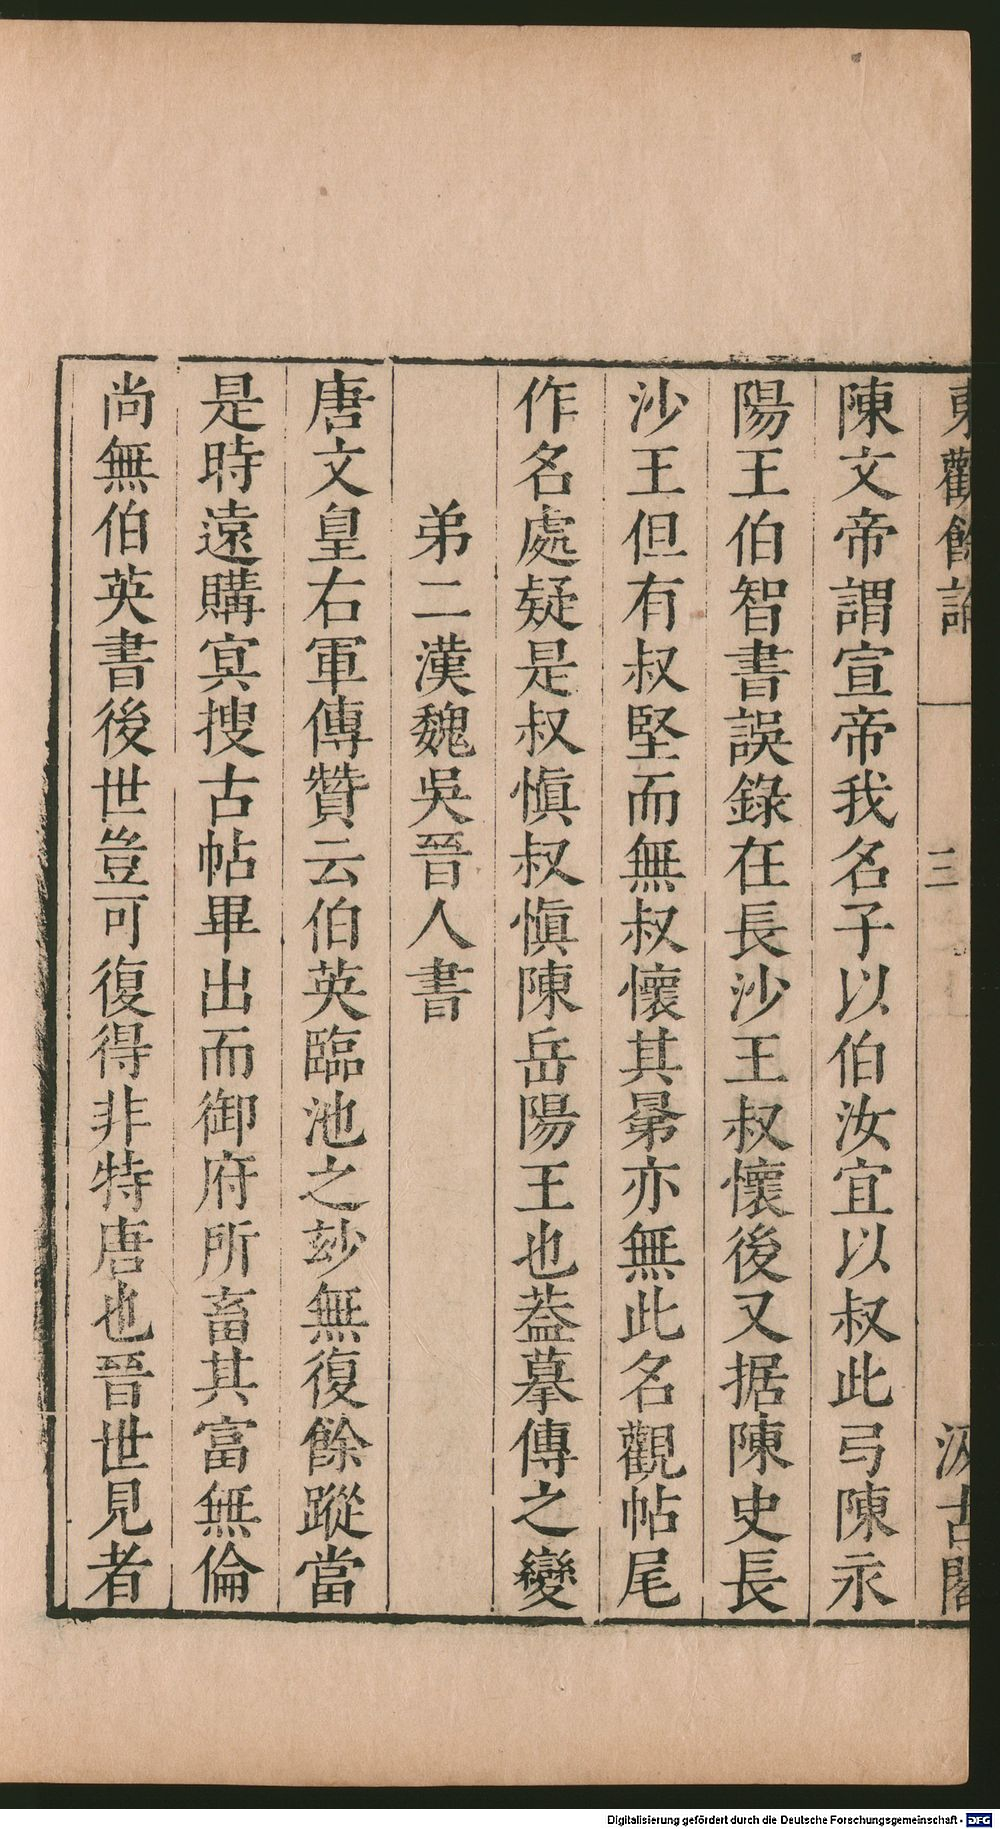 東觀餘論 一 三 汲古閣
陳文帝謂宣帝我名子以伯汝宜以叔此弓陳永
陽王伯智書誤錄在長沙王叔懷後又据陳史長
沙王但有叔堅而無叔懷其㬅亦無此名觀帖尾
作名處疑是叔愼叔愼陳岳陽王也葢摹傳之變
弟二漢魏吳晉人書
唐文皇右軍傳贊云伯英臨池之玅無復餘蹤當
是時遠購㝠搜古帖畢出而御府所畜其富無倫
尚無伯英書後世豈可復得非特唐也晉世見者
Digitalisierung gefördert durch die Deutsche Forschungsgemeinschaft - DFG